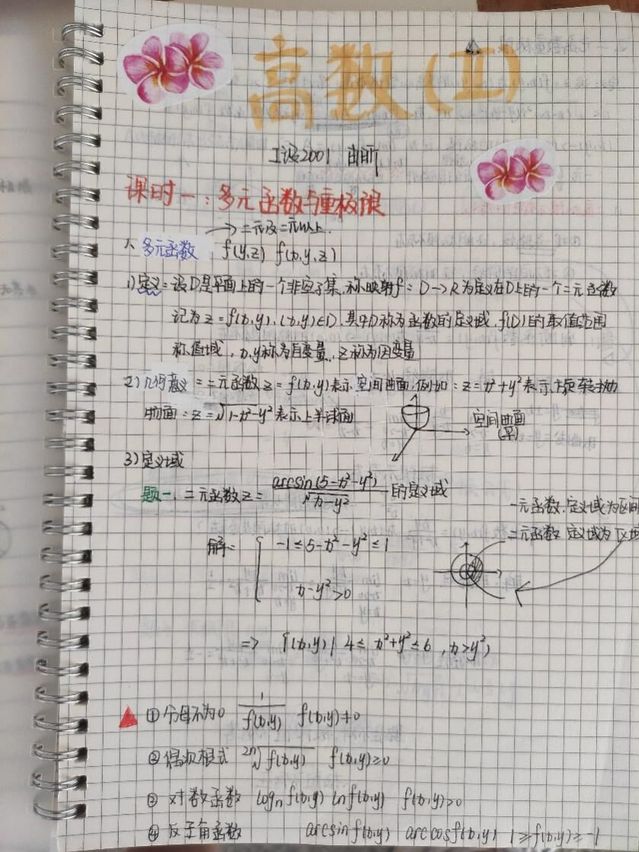 高数(II)
2001
课时一:多元函数与重极限
→二元及二元以上
1、多元函数 f(y,z) f(x,y,z)
1)定义:设D是平面上的一个非空子集,称映射f:D→R为定义在D上的一个二元函数
记为z=f(x,y),(x,y)∈D,其中D称为函数的定义域,f(D)的取值范围
称值域,x,y称为自变量,z称为因变量
2)几何意义:二元函数z=f(x,y)表示空间曲面,例如:z=x²+y²表示上旋转抛
物面:z=√1-x²-y²表示上半球面
空间曲面
3)定义域
题一、二元函数z=arcsin(5-x²-y²)/√x-y²的定义域
一元函数,定义域为区间
二元函数 定义域为区域
解:{ -1≤5-x²-y²≤1
x-y²>0
=> {(x,y)| 4≤x²+y²≤6,x>y²}
①分母不为0 1/f(x,y) f(x,y)≠0
②偶次根式 2n√f(x,y) f(x,y)≥0
③对数函数 logn f(x,y) lnf(x,y) f(x,y)>0
④反三角函数 arcsinf(x,y) arccosf(x,y) 1≥f(x,y)≥-1